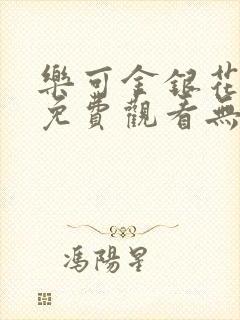 樂可金銀花
免費觀看無
馮陽星